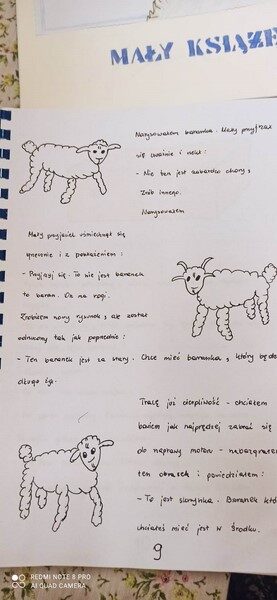 MAŁY KSIĄŻĘ
Narysowałem baranka. Mały przyjrzał
się uważnie i rzekł:
- Nie ten jest zabardzo chory,
Zrób innego.
Narysowałem
Mały przyjaciel uśmiechnął się
grzecznie i z pobłażaniem:
- Przyjrzyj się. To nie jest baranek
to baran. On ma rogi.
Zrobiłem nowy rysunek, ale został
odrzucony tak jak poprzednie:
- Ten baranek jest za stary. Chcę mieć baranka, który będzie
długo żył.
Tracę już cierpliwość - chciałem
bowiem jak najprędzej zabrać się
do naprawy motoru - nabazgrałem
ten obrazek i powiedziałem:
- To jest skrzynka. Baranek, któ
chciałeś mieć jest w środku.
9
REDMI NOTE 8 PRO
AI QUAD CAMERA